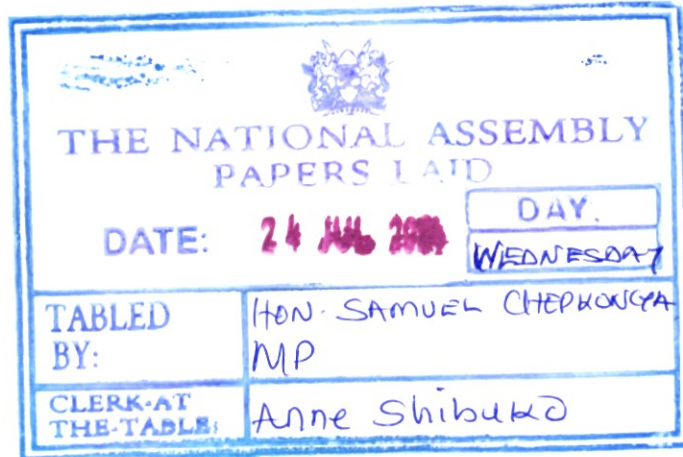 THE NATIONAL ASSEMBLY
PAPERS LAID
DATE: 24 JUL
DAY.
WEDNESDAY
TABLED BY:
HON. SAMUEL CHEPKONGA MP
CLERK-AT THE-TABLE:
Anne Shibuko